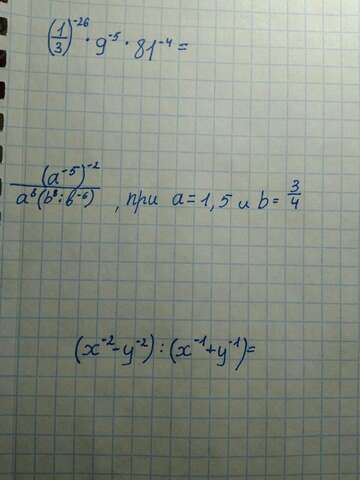 (1/3)⁻²⁶ · 9⁻⁵ · 81⁻⁴ =
(a⁻⁵)⁻²
a⁸(b⁸:b⁻⁶) , при a=1,5 и b=3/4
(x⁻²-y⁻²):(x⁻¹+y⁻¹)=